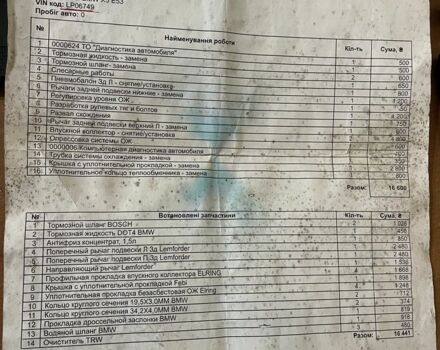 X5 E53
VIN код: LP06749
Пробіг авто: 0
№ Найменування роботи Кіл-ть Сума, ₴
1 0000624 ТО "Диагностика автомобиля" 1 500
2 Тормозная жидкость - замена 1
3 Тормозной шланг- замена 1 500
4 Слесарные работы 2 600
5 Пневмобалон Зд Л - снятие/установка 1 650
6 Рычаги задней подвески нижние - замена
7 Регулировка уровня ОЖ
8 Разработка рулевых тяг и болтов
9 Развал схождения
10 Рычаг задней подвески верхний Л - замена
11 Впускной коллектор - снятие/установка
12 Опрессовка системы ОЖ
13 0000006 Компьютерная диагностика автомобиля
14 Трубка системы охлаждения - замена
15 Крышка с уплотнительной прокладкой - замена
16 Уплотнительное кольцо теплообменника - замена 1 800
Разом: 16 600
№ Встановлені запчастини Кіл-ть Сума, ₴
1 Тормозной шланг BOSCH 2 1 028
2 Тормозная жидкость DOT4 BMW 1 456
3 Антифриз концентрат, 1,5л 1 850
4 Поперечный рычаг подвески Л Зд Lemforder 1 2 480
5 Поперечный рычаг подвески П Зд Lemforder 1 2 480
6 Направляющий рычаг Lemforder 1 1 536
7 Профильная прокладка впускного коллектора ELRING 4 1 668
8 Крышка с уплотнительной прокладкой Febi 1 1 898
9 Уплотнительная прокладка безасбестовая ОЖ Elring 4 1 248
10 Кольцо круглого сечения 19,5X3,0MM BMW 2 712
11 Кольцо круглого сечения 34,2X4,0MM BMW 2 374
12 Прокладка дроссельной заслонки BMW 1 619
13 Водяной шланг BMW 1 912
14 Очиститель TRW 3 480
Разом: 16 441